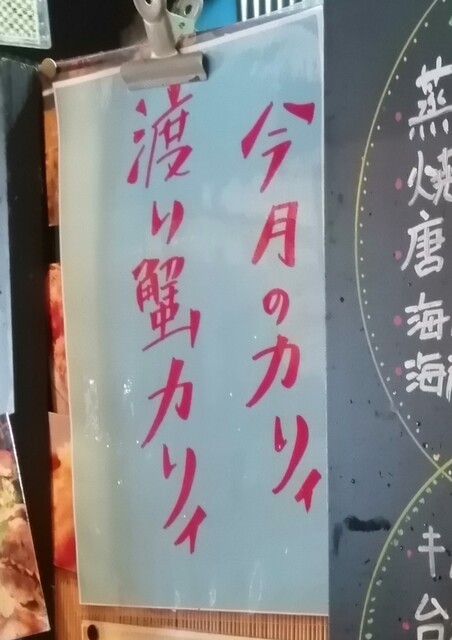 今月のカリィ
渡り蟹カリィ
蒸
焼
唐
海
海
キ
台